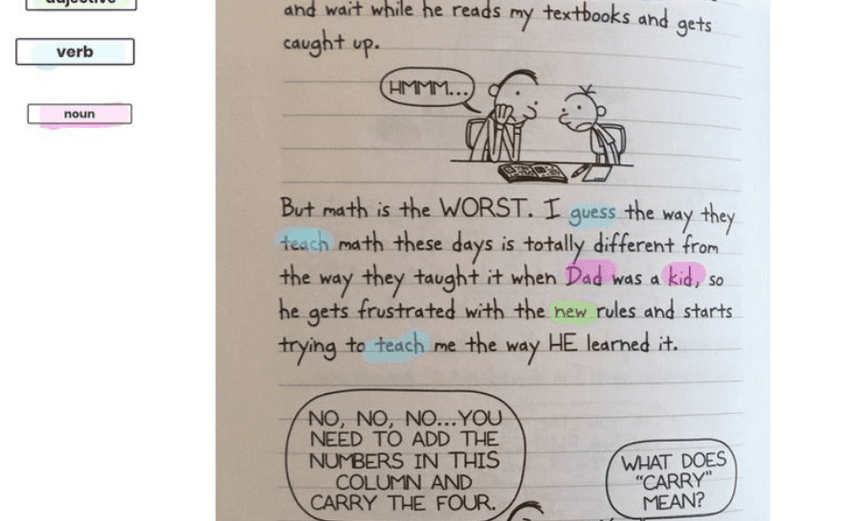 adjective
verb
noun
and wait while he reads my textbooks and gets
caught up.
HMMM...
But math is the WORST. I guess the way they
teach math these days is totally different from
the way they taught it when Dad was a kid, so
he gets frustrated with the new rules and starts
trying to teach me the way HE learned it.
NO, NO, NO...YOU
NEED TO ADD THE
NUMBERS IN THIS
COLUMN AND
CARRY THE FOUR.
WHAT DOES
"CARRY"
MEAN?